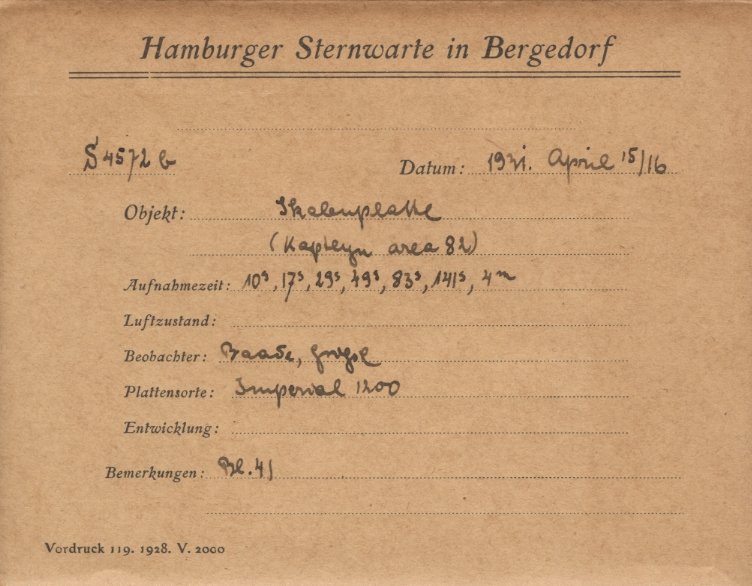 Hamburger Sternwarte in Bergedorf
S 4572 b Datum: 1931. April 15/16
Objekt: Skalenplatte
(Kapteyn area 82)
Aufnahmezeit: 10s, 17s, 29s, 49s, 83s, 141s, 4m
Luftzustand:
Beobachter: Baade,
Plattensorte: Imperial 1200
Entwicklung:
Bemerkungen: Bl. 41
Vordruck 119. 1928. V. 2000